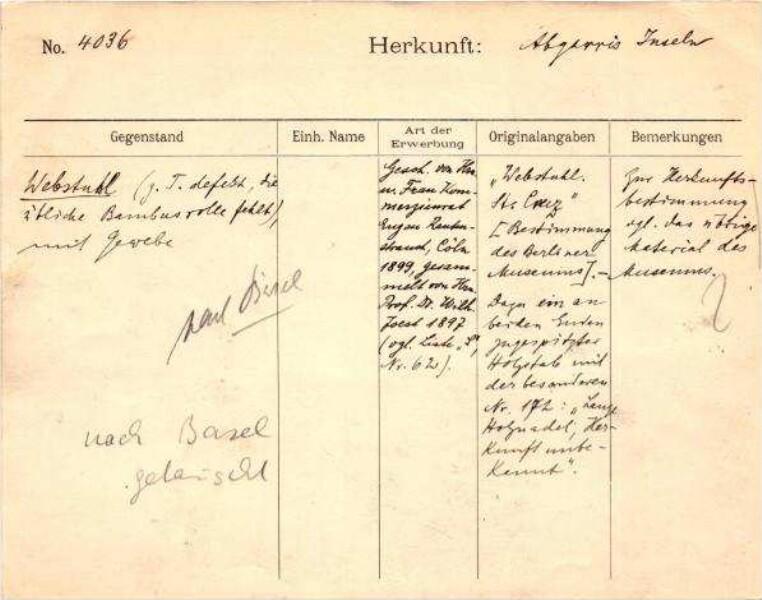 No. 4036
Herkunft: Abgarris Inseln
Gegenstand
Einh. Name
Art der Erwerbung
Originalangaben
Bemerkungen
Webstuhl (z. T. defekt, die
übliche Bambusrolle fehlt),
mit Gewebe
nach Basel
nach Basel
getauscht
Gesch. von Hrn.
u. Frau Kom-
merzienrat
Eugen Rauten-
strauch, Cöln
1899, gesam-
melt von Hrn.
Prof. Dr. Wilh.
Joest 1897
(vgl. Liste „S",
Nr. 62).
„Webstuhl.
St. Cruz"
[Bestimmung
des Berliner
Museums]. –
Dazu ein an
beiden Enden
zugespitzter
Holzstab mit
der besonderen
Nr. 172: „Lange
Holznadel, Her-
kunft unbe-
kannt".
Zur Herkunfts-
bestimmung
vgl. das übrige
Material des
Museums.